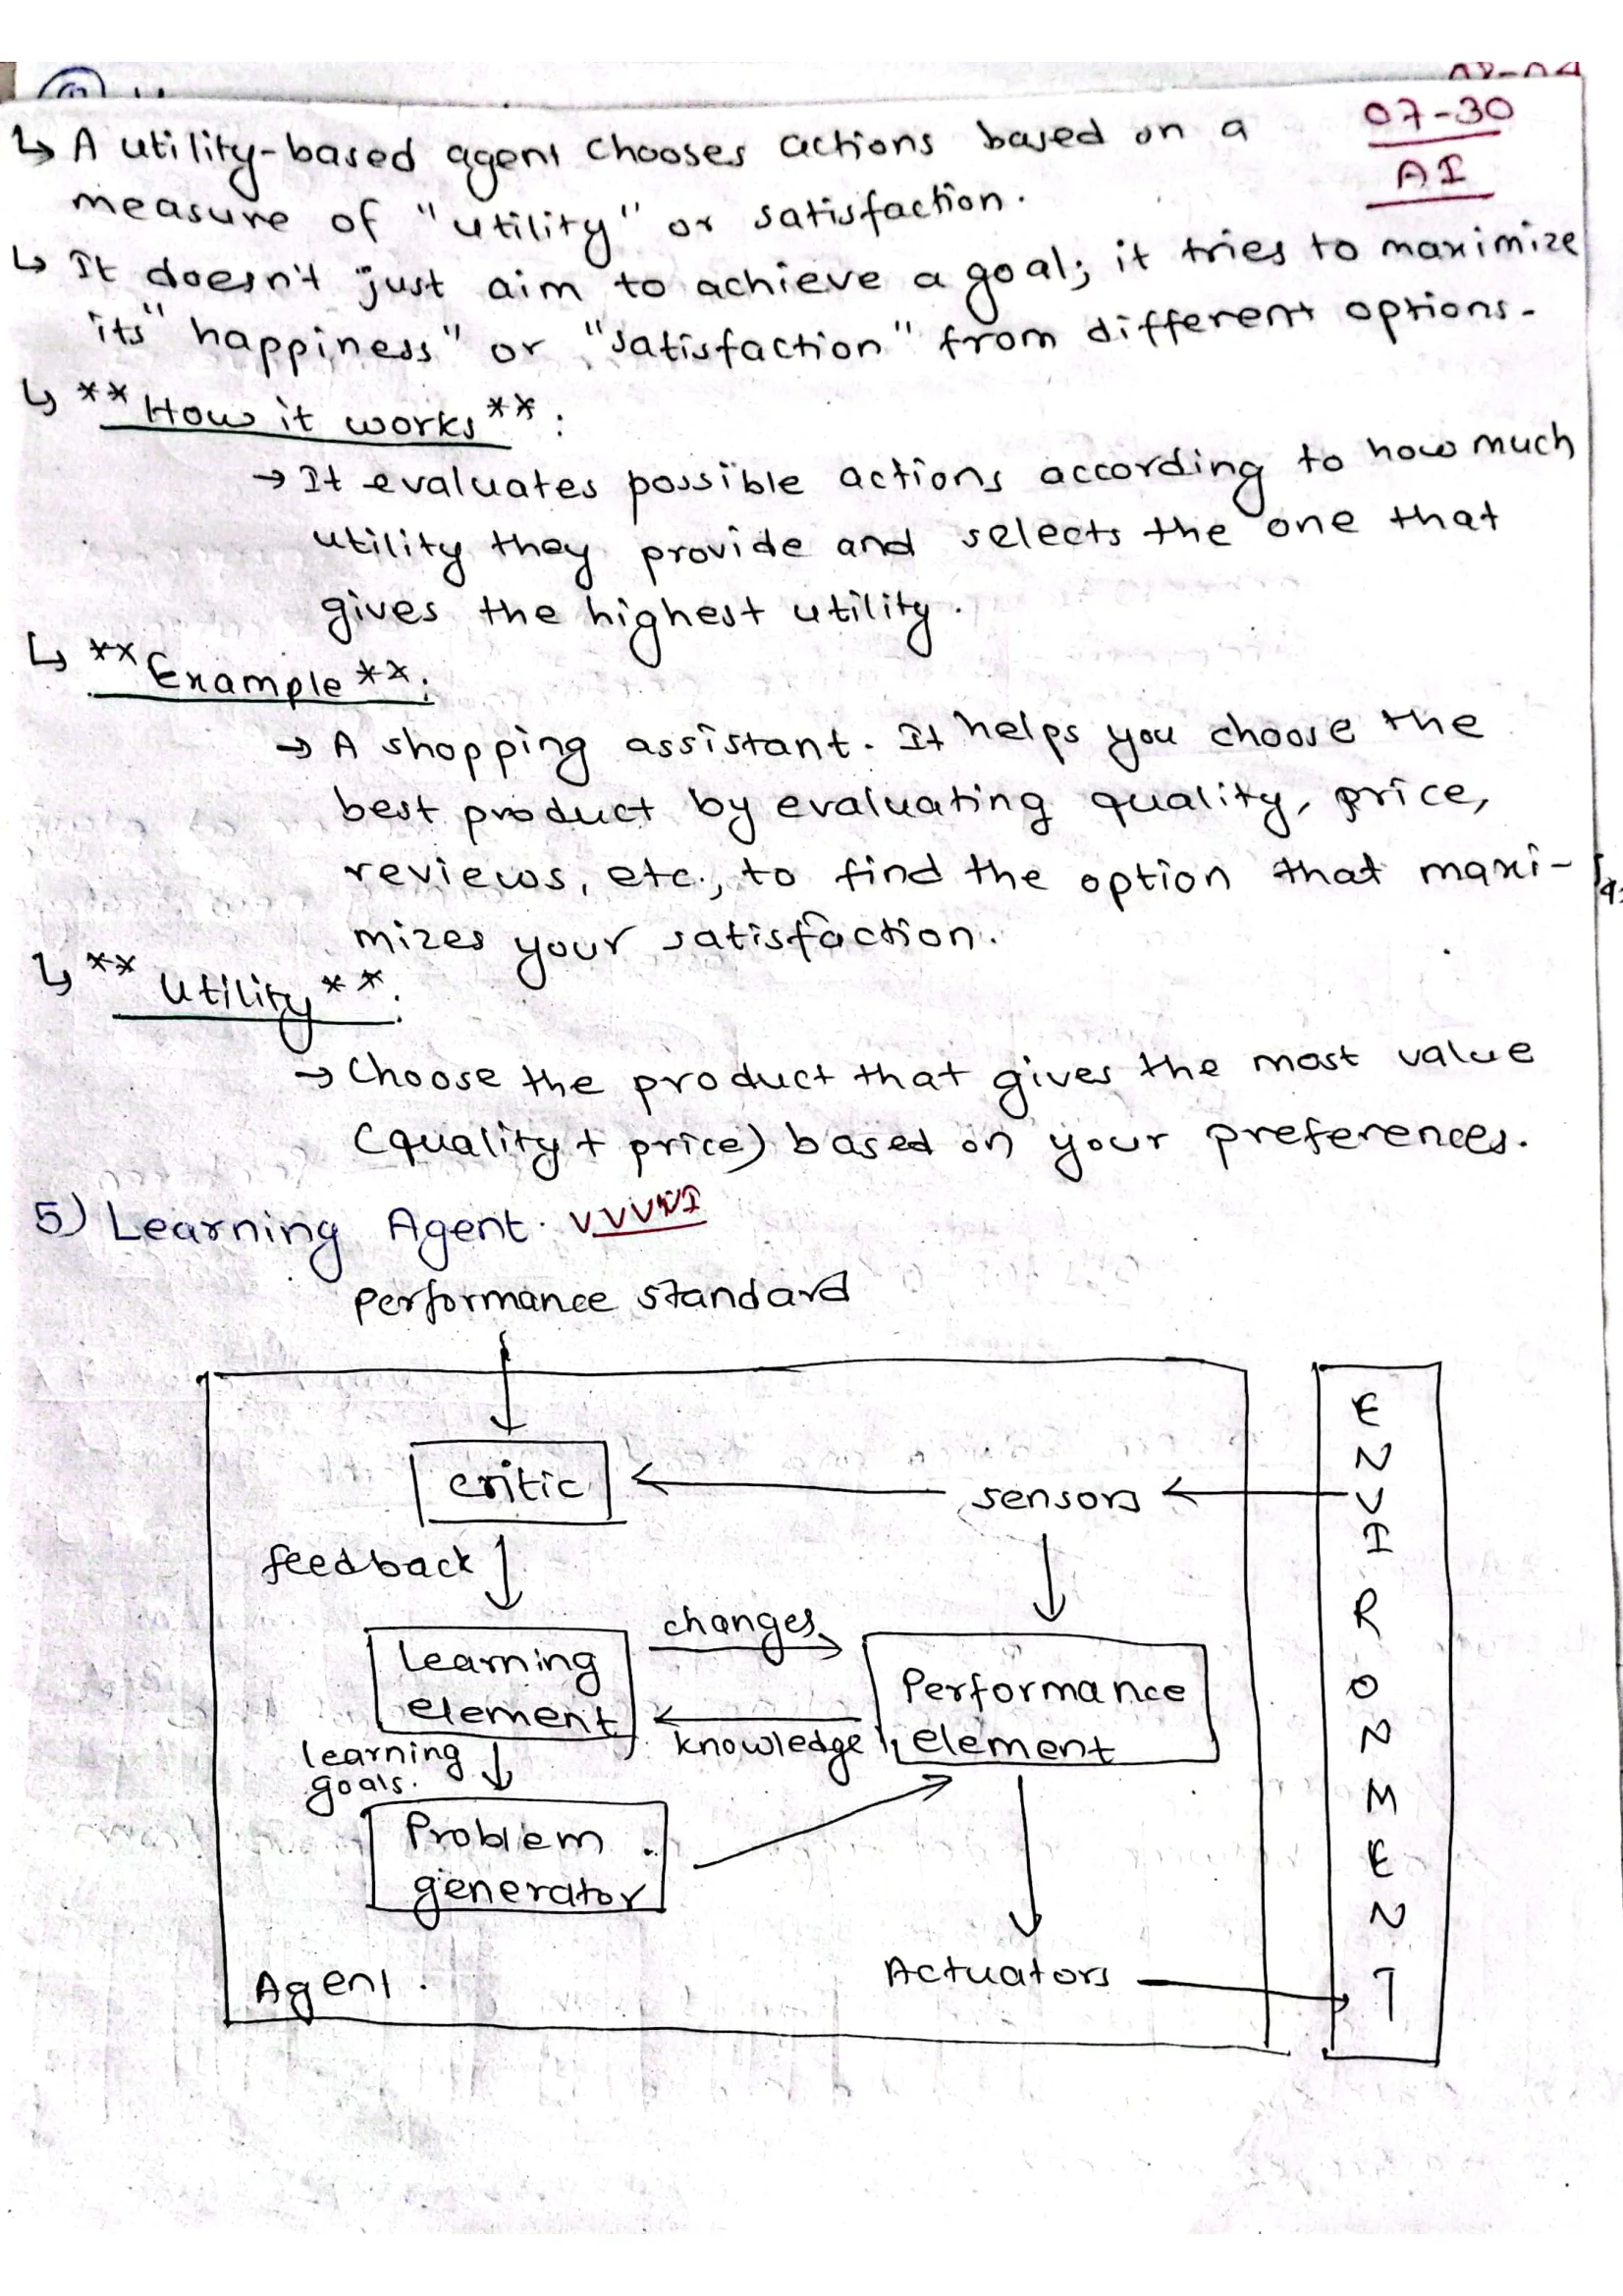 07-30
AI
↳ A utility-based agent chooses actions based on a
measure of "utility" or satisfaction.
↳ It doesn't just aim to achieve a goal; it tries to maximize
its "happiness" or "satisfaction" from different options.
↳ ** How it works ** :
→ It evaluates possible actions according to how much
utility they provide and selects the one that
gives the highest utility.
↳ ** Example ** :
→ A shopping assistant. It helps you choose the
best product by evaluating quality, price,
reviews, etc., to find the option that maxi-
mizes your satisfaction.
↳ ** Utility ** :
→ Choose the product that gives the most value
(quality + price) based on your preferences.
5) Learning Agent.
performance standard
critic
sensors
feedback
changes
Learning
element
Performance
element
knowledge
learning
goals.
Problem
generator
Actuators
Agent.
ENVIRONMENT